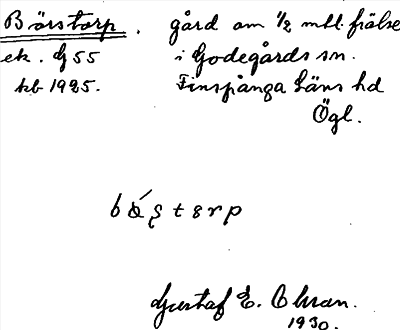 Börstorp. gård om 1/2 mtl. frälse
ek. G 55 i Godegårds sn.
kb 1925. Finspånga läns hd
Ögl.
Gustaf E. Ohman.
1930.